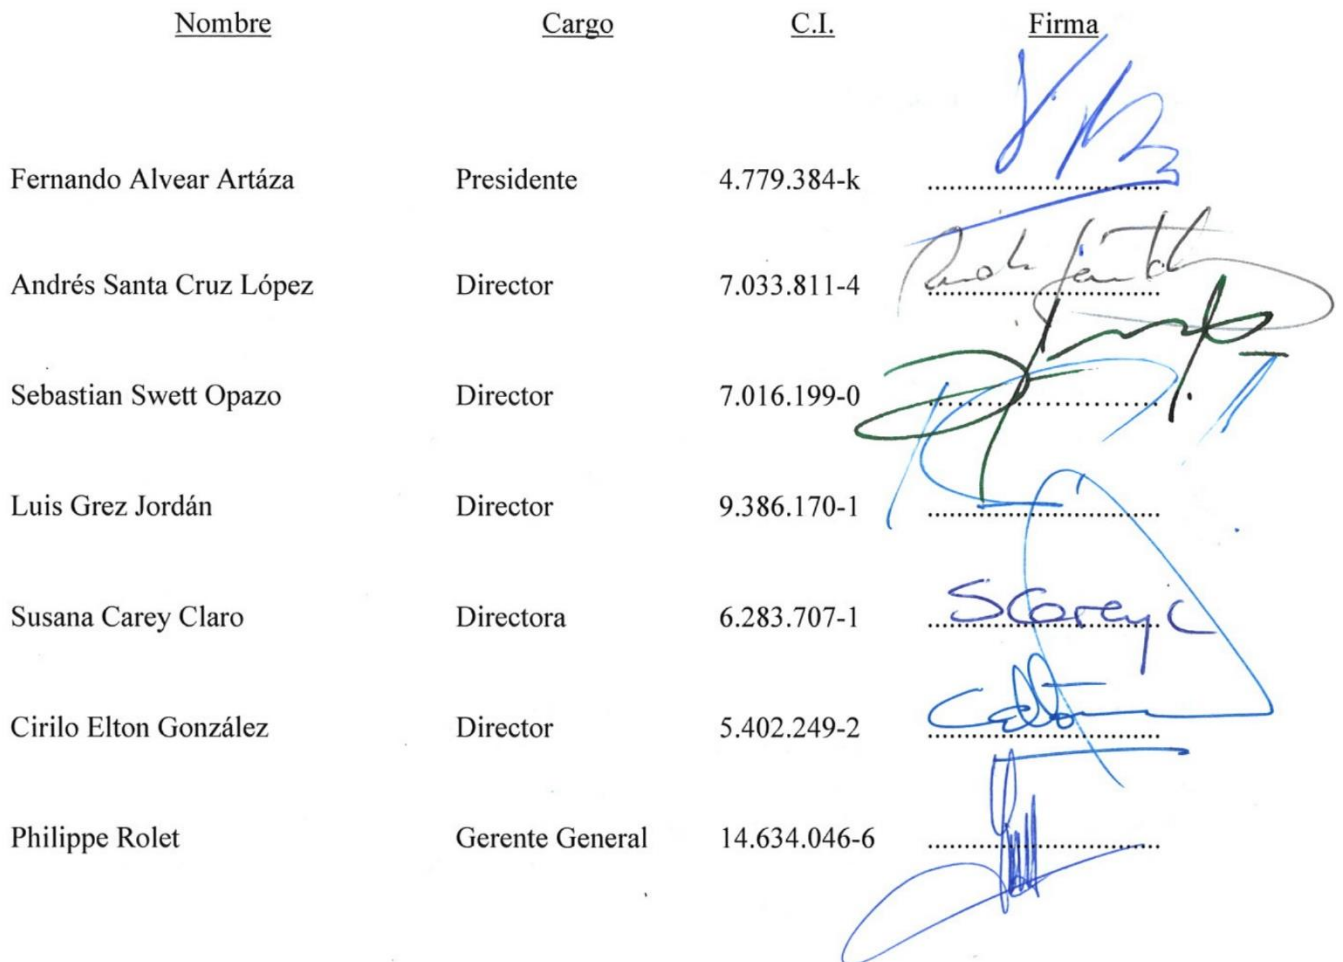 Nombre Cargo C.I. Firma
Fernando Alvear Artáza Presidente 4.779.384-k
Andrés Santa Cruz López Director 7.033.811-4
Sebastian Swett Opazo Director 7.016.199-0
Luis Grez Jordán Director 9.386.170-1
Susana Carey Claro Directora 6.283.707-1 SCareyC
Cirilo Elton González Director 5.402.249-2
Philippe Rolet Gerente General 14.634.046-6